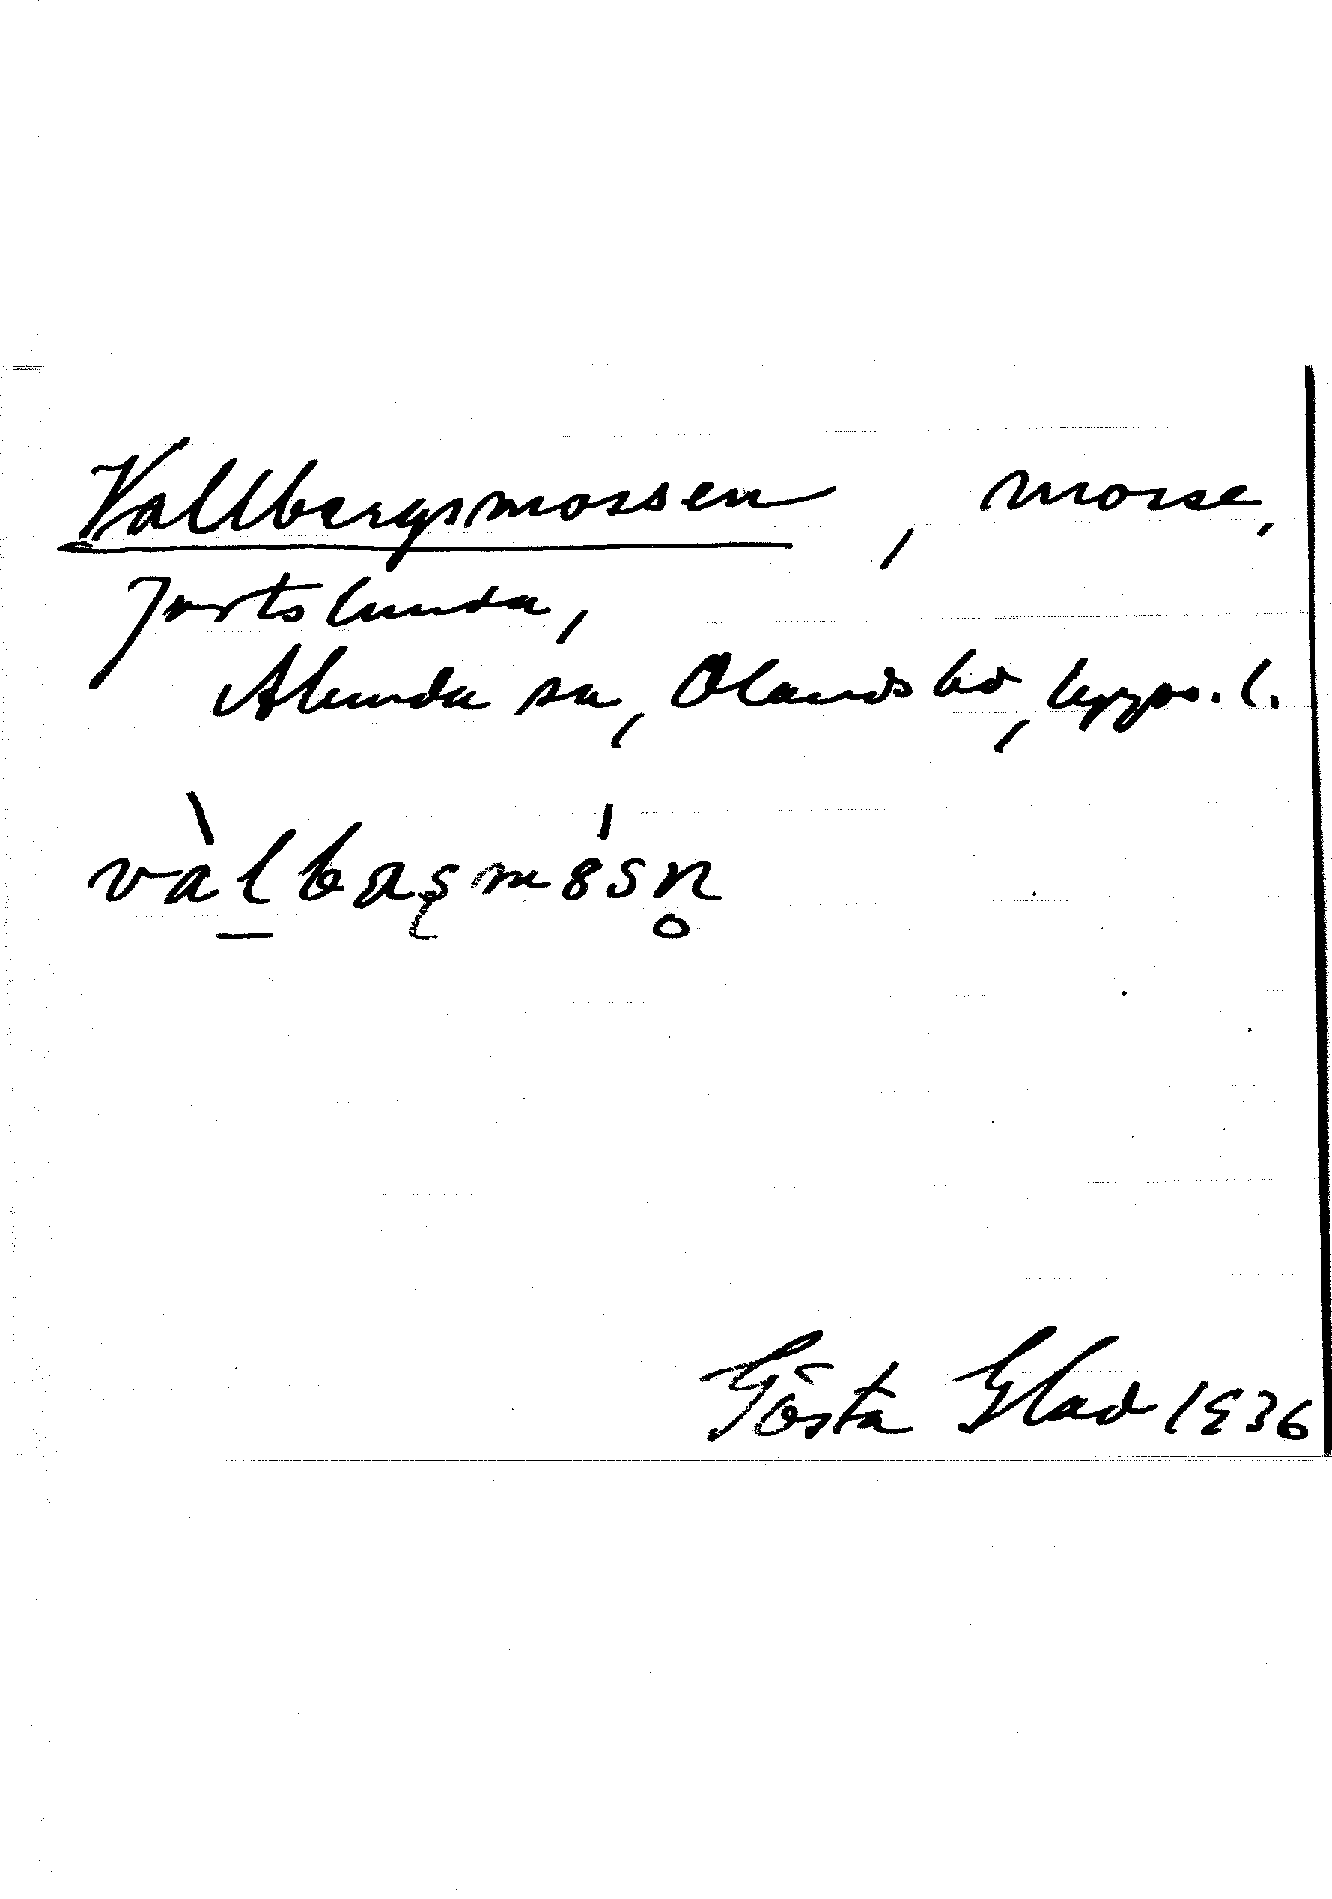 Vallbergsmossen, mosse,
Jortslunda,
Alunda sn, Olands hd, Upps. l.
vàlbaʂmósn̥
Gösta Glad 1936